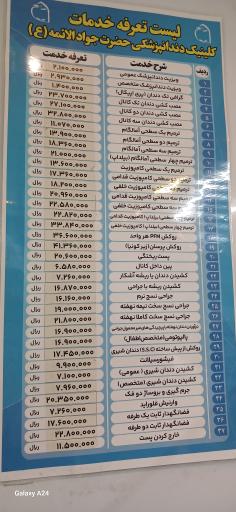 لیست تعرفه خدمات
کلینیک دندانپزشکی حضرت جوادالائمه (ع)
ردیف شرح خدمت تعرفه خدمت
ویزیت دندانپزشک عمومی ۲.۱۰۰.۰۰۰ ریال
ویزیت دندانپزشک متخصص ۲.۹۳۰.۰۰۰ ریال
گرافی تک دندان (پری اپیکال) ۱.۴۰۰.۰۰۰ ریال
عصب کشی دندان تک کانال ۲۳.۷۰۰.۰۰۰ ریال
عصب کشی دندان دو کانال ۲۷.۱۰۰.۰۰۰ ریال
عصب کشی دندان سه کانال ۳۲.۸۰۰.۰۰۰ ریال
ترمیم یک سطحی آمالگام ۱۱.۰۷۰.۰۰۰ ریال
ترمیم دو سطحی آمالگام ۱۳.۹۰۰.۰۰۰ ریال
ترمیم سه سطحی آمالگام ۱۸.۳۶۰.۰۰۰ ریال
ترمیم چهار سطحی آمالگام (بیلداپ) ۲۱.۰۰۰.۰۰۰ ریال
ترمیم یک سطحی کامپوزیت ۱۳.۶۰۰.۰۰۰ ریال
ترمیم دو سطحی کامپوزیت قدامی ۱۷.۳۶۰.۰۰۰ ریال
ترمیم دو سطحی کامپوزیت خلفی ۱۸.۲۰۰.۰۰۰ ریال
ترمیم سه سطحی کامپوزیت قدامی ۲۰.۹۶۰.۰۰۰ ریال
ترمیم سه سطحی کامپوزیت خلفی ۲۲.۵۸۰.۰۰۰ ریال
۲۲.۸۲۰.۰۰۰ ریال
۳۳.۸۴۰.۰۰۰ ریال
روکش PFM هر واحد ۳۶.۶۰۰.۰۰۰ ریال
روکش پرسلن (زیرکونیا) ۴۱.۳۶۰.۰۰۰ ریال
پست ریختگی ۲۰.۶۰۰.۰۰۰ ریال
پین داخل کانال ۶.۵۸۰.۰۰۰ ریال
کشیدن دندان یا ریشه آشکار ۷.۲۶۰.۰۰۰ ریال
کشیدن ریشه با جراحی ۱۶.۸۷۰.۰۰۰ ریال
جراحی نسج نرم ۱۶.۱۶۰.۰۰۰ ریال
جراحی نسج سخت نیمه نهفته ۱۹.۰۰۰.۰۰۰ ریال
جراحی نسج سخت کاملا نهفته ۲۱.۸۰۰.۰۰۰ ریال
۱۶.۹۰۰.۰۰۰ ریال
پالپوتومی (متخصص اطفال) ۱۶.۹۰۰.۰۰۰ ریال
روکش از پیش ساخته (S.S.C) دندان شیری ۱۷.۴۵۰.۰۰۰ ریال
فیشورسیلانت ۹.۹۰۰.۰۰۰ ریال
کشیدن دندان شیری (عمومی) ۷.۱۰۰.۰۰۰ ریال
کشیدن دندان شیری (متخصص) ۷.۹۶۰.۰۰۰ ریال
جرم گیری و بروساژ دو فک ۲۰.۳۵۰.۰۰۰ ریال
وارنیش فلوراید ۷.۲۶۰.۰۰۰ ریال
فضانگهدار ثابت یک طرفه ۱۷.۶۰۰.۰۰۰ ریال
فضانگهدار ثابت دو طرفه ۲۲.۸۰۰.۰۰۰ ریال
خارج کردن پست ۱۱.۵۰۰.۰۰۰ ریال
Galaxy A24